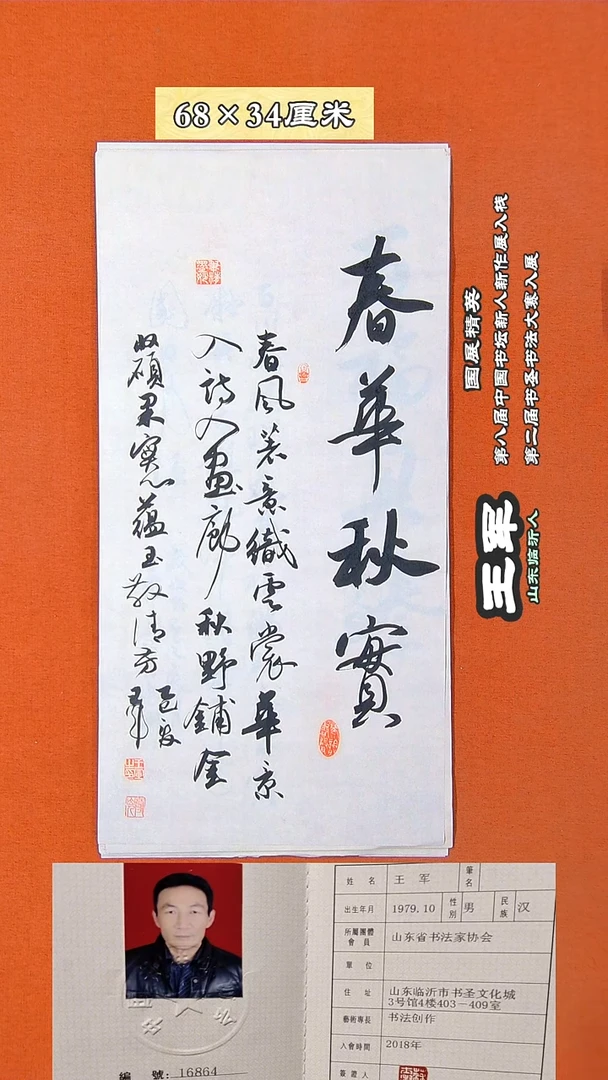 68×34厘米
春華秋實
春风著意織雲裳華章
入詩入畫廊秋野鋪金
收碩果實心蘊玉散清芳
乙巳夏
王軍
国展精英
第八届中国书坛新人新作展入展
第二届书圣书法大赛入展
王军
山东临沂人
姓名 王军
筆名
出生年月 1979.10 性别 男 民族 汉
所屬團體會員 山东省书法家协会
單位
住址 山东临沂市书圣文化城
3号馆4楼403—409室
藝術專長 书法创作
入會時間 2018年
簽證人
編號: 16864